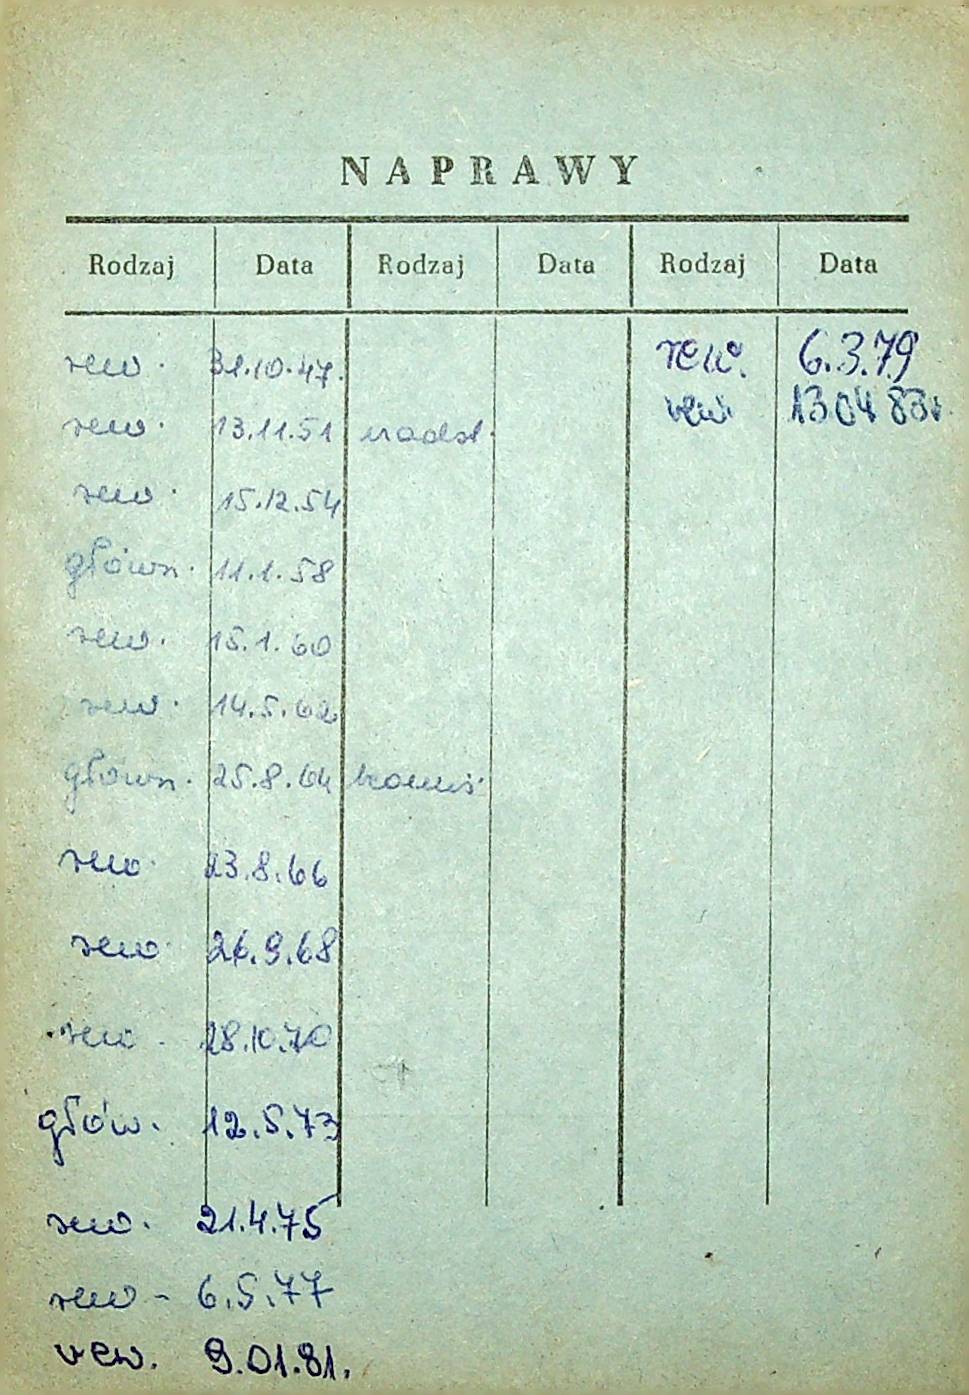 NAPRAWY
Rodzaj Data Rodzaj Data Rodzaj Data
rew. 31.10.47. rew. 6.3.79
rew. 13.11.51 nadsł. rew. 13 04 83r.
rew. 15.12.54
główn. 11.1.58
rew. 15.1.60
rew. 14.5.62
główn. 25.8.64
rew. 23.8.66
rew. 26.9.68
rew. 28.10.70
głów. 12.5.73
rew. 21.4.75
rew - 6.5.77
rew. 9.01.81.